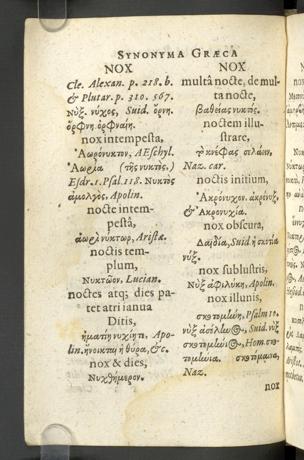 SYNONYMA GRÆCA
NOX
Cle. Alexan. p. 218. b.
& Plutar. p. 310. 567.
Νύξ. νύχος, Suid. ὄρνη.
ὄρφνη. ὀρφναίη.
nox intempesta,
Ἀωρόνυκτον, AEschyl.
Ἀωρία (τῆς νυκτὸς.)
Esdr. 1. Psal. 118. Νυκτὸς
ἀμολγὸς, Apolin.
nocte intem-
pestâ,
ἀωρὶ νύκτωρ, Aristæ.
noctis tem-
plum,
Νυκτῶον, Lucian.
noctes atq; dies pa-
tet atri ianua
Ditis,
Apo-
lin. ἠνοικται ἡ θύρα, &c.
nox & dies,
Νυχθήμερον.
NOX
multâ nocte, de mul-
ta nocte,
βαθείας νυκτὸς.
noctem illu-
strare,
κνέφας
Naz. car.
noctis initium,
Ἀκρόνυχον. ἀκρόνυξ,
& Ἀκρονυχία.
nox obscura,
Suid ἡ σκοτία
νύξ.
nox sublustris,
Νὺξ ἀφιλύκη, Apolin.
nox illunis,
σκοτομήνη, Psalm 10.
νὺξ ἀσέληνος, Suid. νὺξ
Hom. σκο-
τομηνία.
Naz.
nox